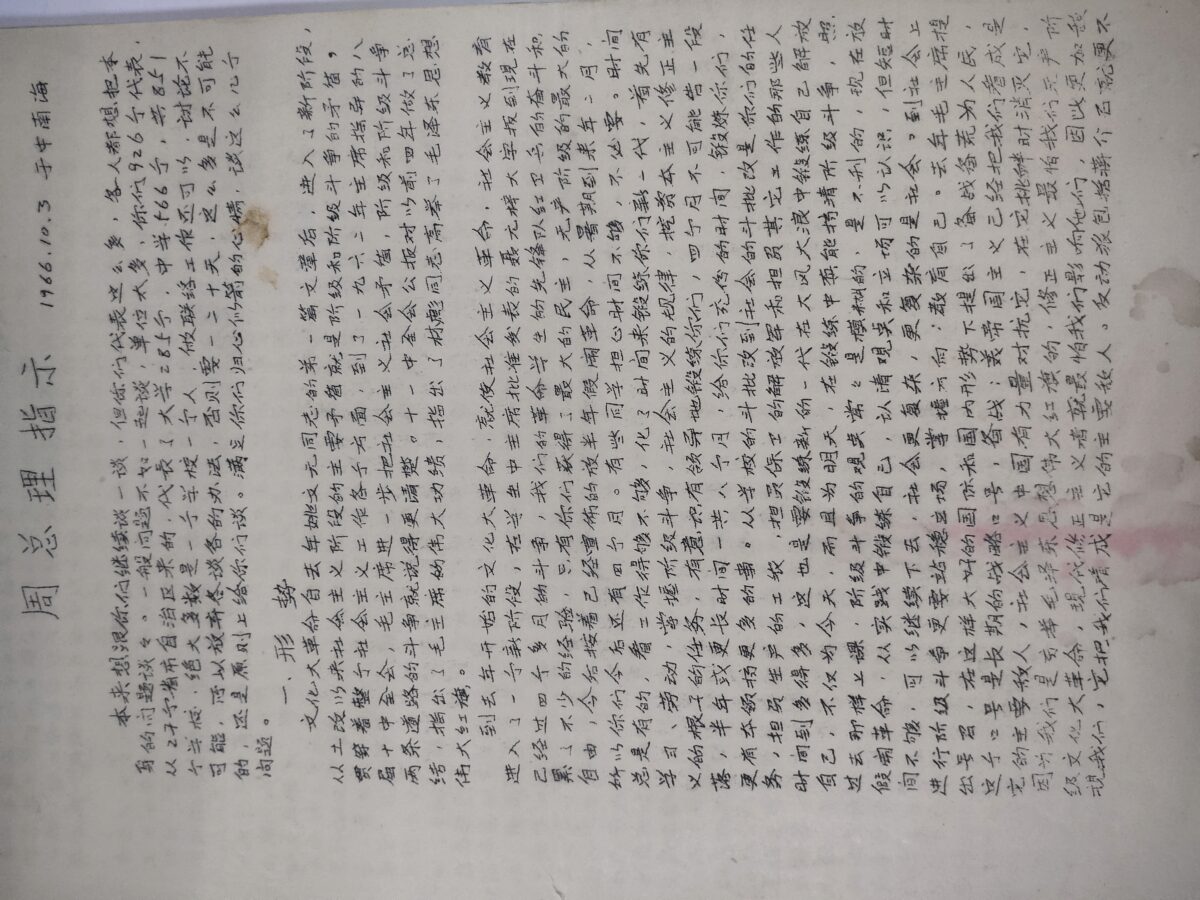 周总理指示 1966.10.3 于中南海
本来想跟你们继续谈一谈，但你们代表这么多，各人都想把本
身的问题谈々。一般问题不如一起谈，单位太多，你们926个代表，
从27个省市自治区来的，代表了大学285个，中学566个，共851
个学校，绝大多数是一个学校一个人，做联络工作还可以，讨论不
可能，所以放弃各谈各的办法，否则要一二十天，这么多是不可能
的，还是原则上给你们谈。满足你们归心似箭的心腈，谈这么几个
问题。
一、形势
文化大革命自去年姚文元同志的第一篇文章后，进入了新阶段，
从土改以来社会主义阶段的主要矛盾就是阶级和阶级斗争的矛盾，
贯穿着整个社会主义工作各个方面，到了一九六二年主席指导的八
届十中全会，毛主席进一步把社会主义社会矛盾，阶级和阶级斗争
两条道路的斗争就说得更清楚。十一中全会公报对以前四年做了总
结，指出了毛主席的伟大功绩，指出了林彪同志高举了毛泽东思想
伟大红旗。
到去年开始的文化大革命，就使社会主义革命，社会主义教育
进入了一个新阶段，在学生中主席批准发表的聂元梓大字报到现在
已经过四个多月的斗争，我们的革命学生的先锋队红卫兵的奋斗积
累了不少的经验，只有你们获得了最大的民主，无产阶级的最大的
自由，今后按着已经宣佈的放半年假闹革命，从暑期到来年二月，
所以你们今后还有四个月。有些同学担心时间不够，不必要。时间
总是有的，看工作得够不够，化了时间来锻练你们新一代，首先有
学习、劳动，掌握阶级斗争，社会主义的规律，挖资本主义修正主
义的根子的任务，有意识有领导地锻练你们，四个月不可能告一段
落，半年或更长时间一共八个月，给你们充份的时间，锻炼你们，
更有本领搞更多的事。从学校的斗批改到社会的斗批改是你们的任
务，担负生产的工农，担负保卫的解放军和担负其它工作的那些人
时间到多得多，这也是要锻练新的一代在大风大浪中锻练自己解放
自己，不仅为今天，而且为明天，在锻练中真能搞清阶级斗争，照
过去那样上课，阶级斗争的观点常々是模糊的，是不利的，现在放
假闹革命，从实践中锻练自己，认清观点和立场可以认识，但短时
间不够，可以继续下去，社会更复杂，更复杂的是社会。到社会上
进行阶级斗争更要站稳立场，掌握方向；教育自己。去年毛主席提
出号召，在这样大好的国际和国内形势下提出了备战备荒为人民，
这个口号是长期的战略口号，备战；美帝国主义已经把我们看成是
它的主要敌人，社会主义中国有力量对抗它，在它挑衅时消灭它，
因为我们是高举毛泽东思想伟大红旗的，修正主义最怕我们无产阶
级文化大革命，现代修正主义者就最怕我们影响他们，因此更加敌
视我们，它把我们看成是它的主要敌人。反动派包括蒋介石就更不